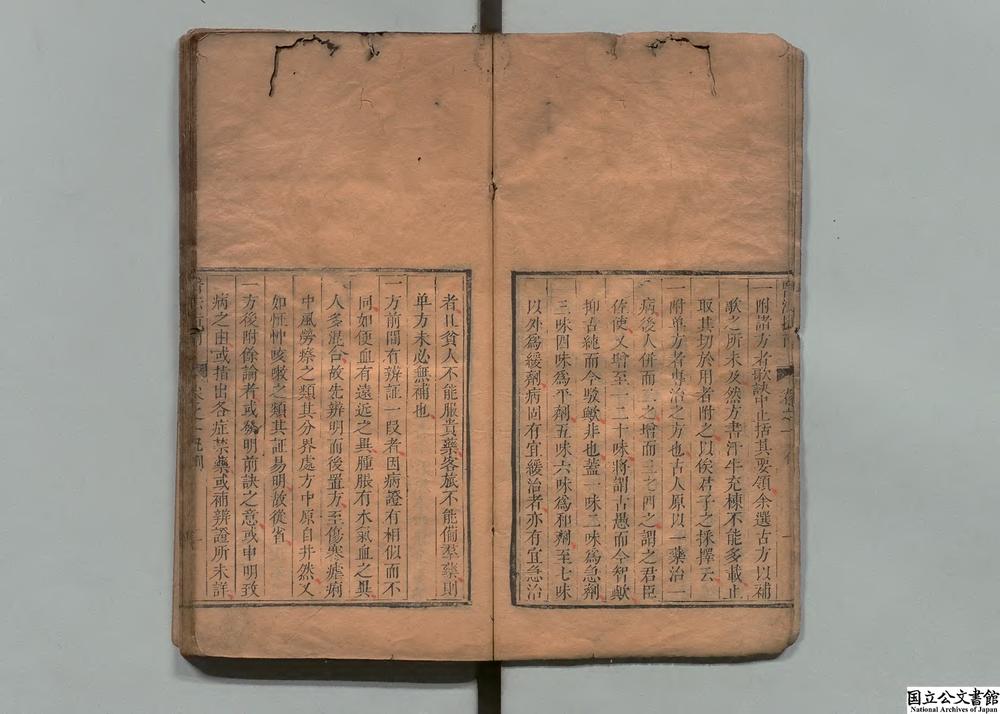 一附諸方者歌訣中止括其要領余選古方以補
歌之所未及然方書汗牛充棟不能多載止
取其切於用者附之以俟君子之採擇云
一附单方者專治之方也古人原以一藥治一
病後人併而二之增而三之四之謂之君臣
佐使又增至一二十味將謂古愚而今智歟
抑古純而今駁歟非也蓋一味二味爲急劑
三味四味爲平劑五味六味爲和劑至七味
以外爲緩劑病固有宜緩治者亦有宜急治
者且貧人不能服貴藥客旅不能備羣藥則
单方未必無補也
一方前間有辨証一段者因病證有相似而不
同如便血有遠近之異腫脹有水氣血之異
人多混合故先辨明而後置方至傷寒瘧痢
中風勞瘵之類其分界處方中原自井然又
如怔忡咳嗽之類其証易明故從省
一方後附餘論者或發明前訣之意或申明致
病之由或指出各症禁藥或補辨證所未詳
国立公文書館
National Archives of Japan